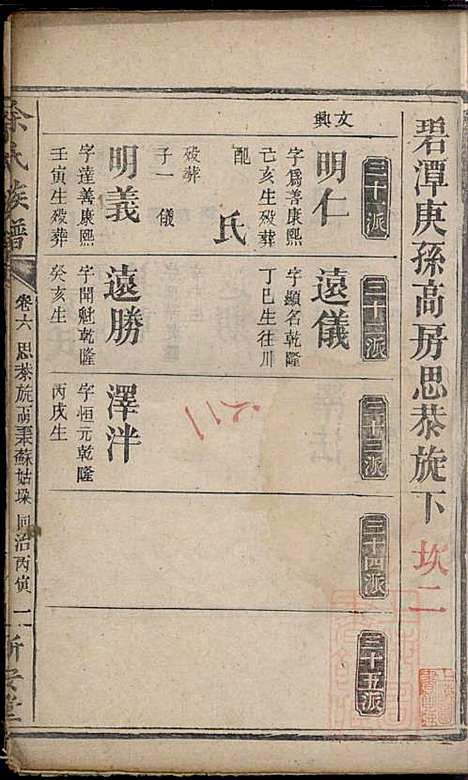 碧潭庚孫高房思恭旋下 坎二
三十一派
三十二派
三十三派
三十四派
三十五派
文興
明仁
字為善康熙
己亥生殁葬
配 氏
殁葬
子一 儀
明義
字達善康熙
壬寅生殁葬
遠儀
字顯名乾隆
丁巳生往川
遠勝
字開魁乾隆
癸亥生
澤泮
字恒元乾隆
丙戌生
余氏族譜
卷六 思恭旋高秉蘇姑垛 同治丙寅